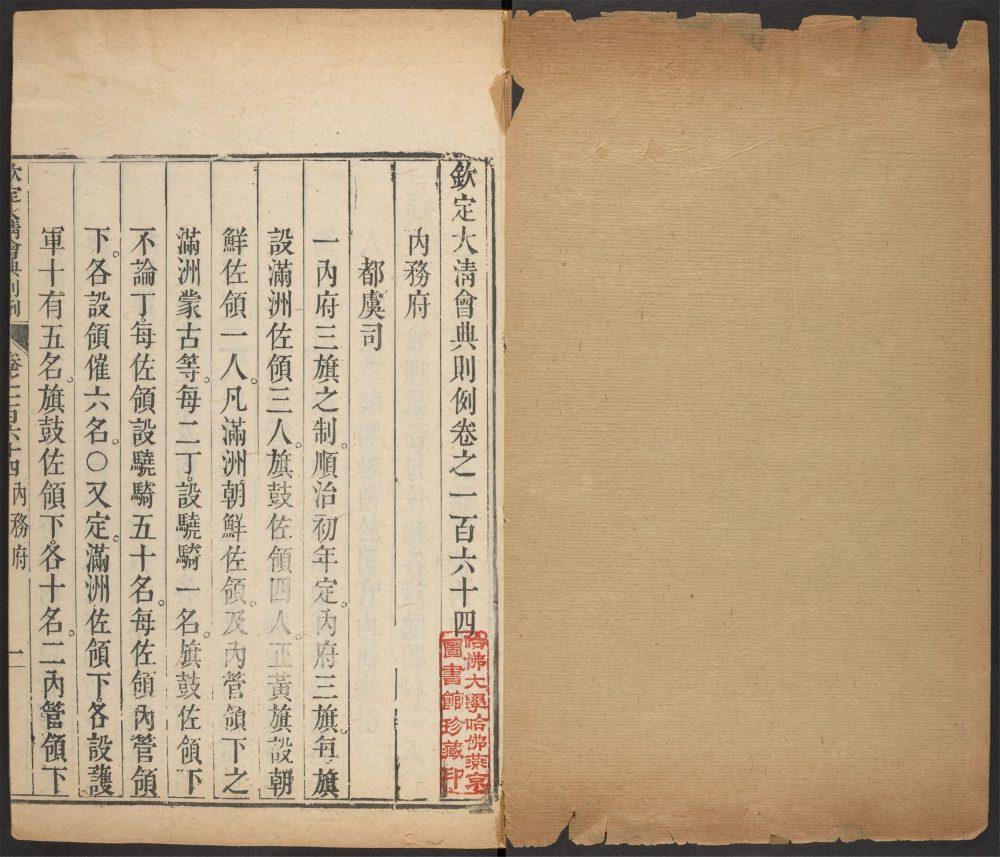 欽定大清會典則例卷之一百六十四
內務府
都虞司
一內府三旗之制。順治初年定。內府三旗。每旗
設滿洲佐領三人。旗鼓佐領四人。正黃旗設朝
鮮佐領一人。凡滿洲朝鮮佐領。及內管領下之
滿洲蒙古等。每二丁。設驍騎一名。旗鼓佐領下
不論丁。每佐領設驍騎五十名。每佐領內管領
下。各設領催六名。〇又定。滿洲佐領下。各設護
軍十有五名。旗鼓佐領下。各十名。二內管領下
欽定大清會典則例
卷之一百六十四
內務府
一
哈佛大學哈佛燕京
圖書館珍藏印